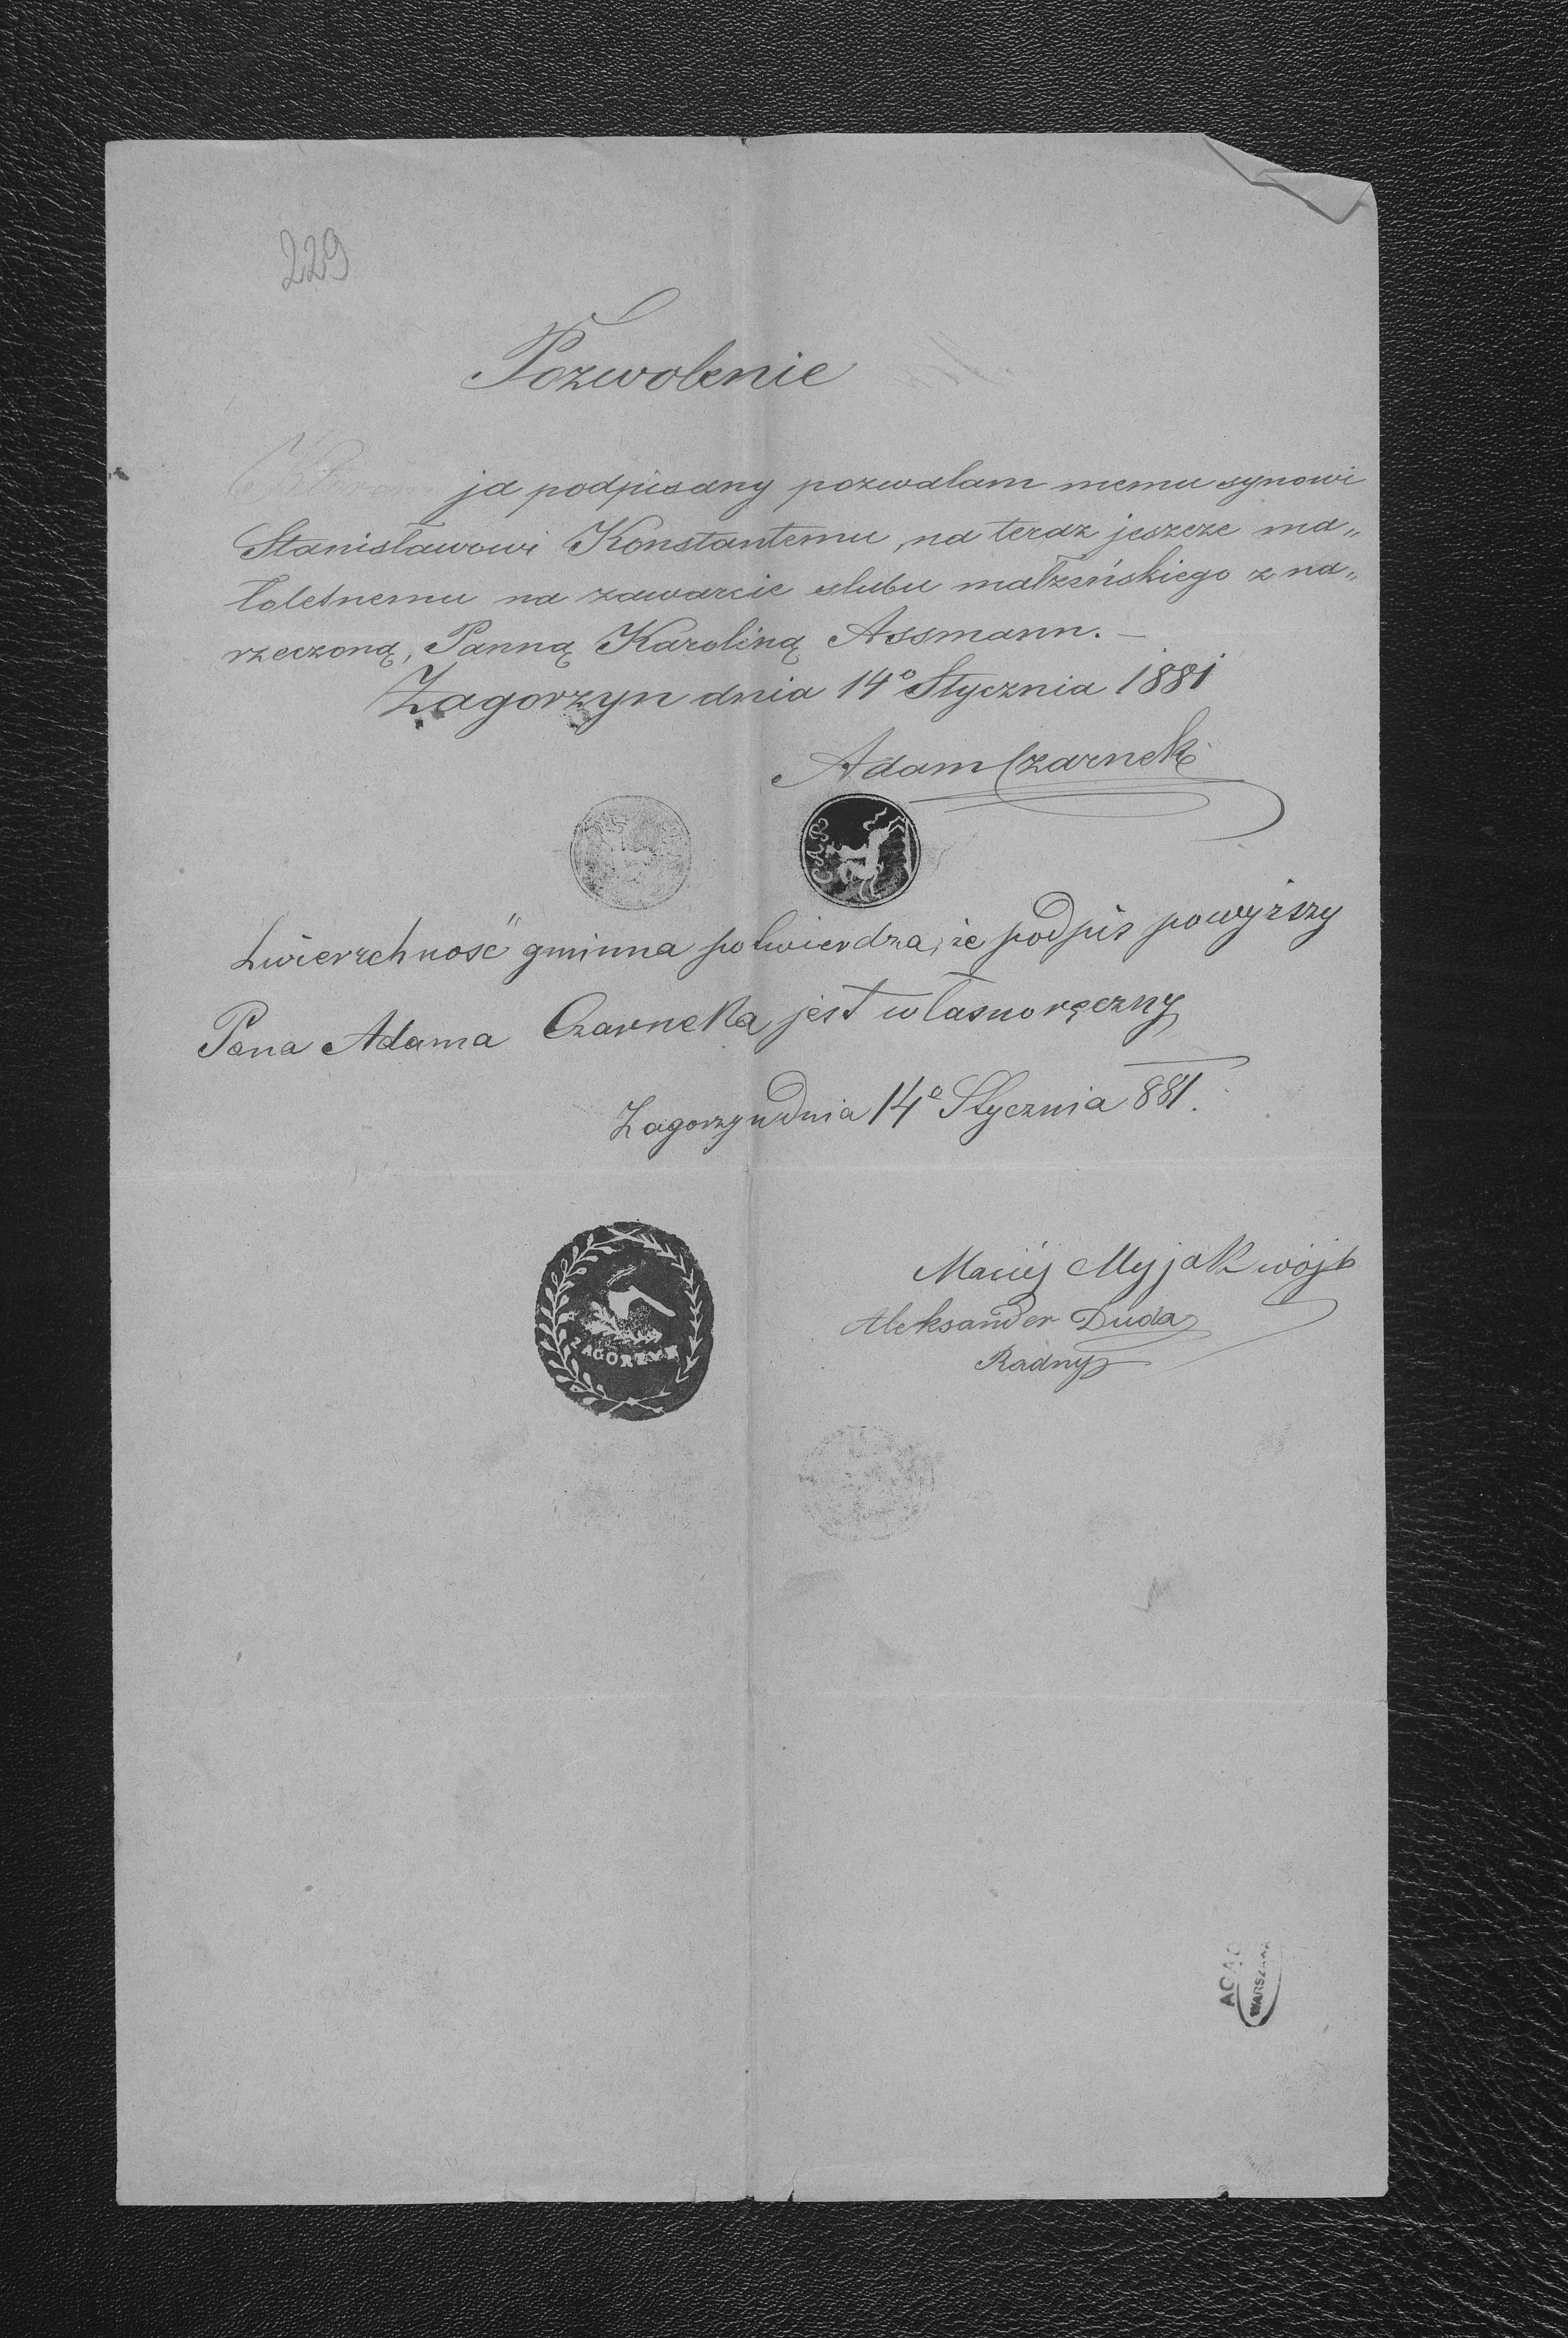 229
Pozwolenie
ja podpisany pozwalam memu synowi
Stanisławowi Konstantemu, na teraz jeszcze ma„
łoletnemu na zawarcie slubu małżeńskiego z na„
rzeczoną, Panną Karoliną Assmann. —
Zagorzyn dnia 14º Stycznia 1881
Adam Czarnek
CAB
Zwierzchność gminna potwierdza, że podpis powyższy
Pana Adama Czarneka jest własnoręczny
Zagorzyn dnia 14º Stycznia 881.
Maciéj Myjak wójt
Aleksander Duda
Radny
ZAGORZYN
AGAD
WARSZAWA